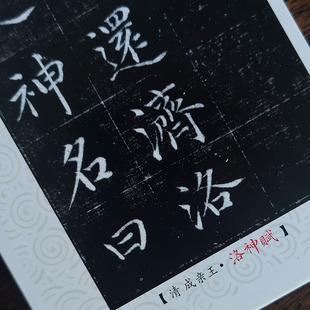 還濟洛
神名曰
【清 成亲王·洛神賦】